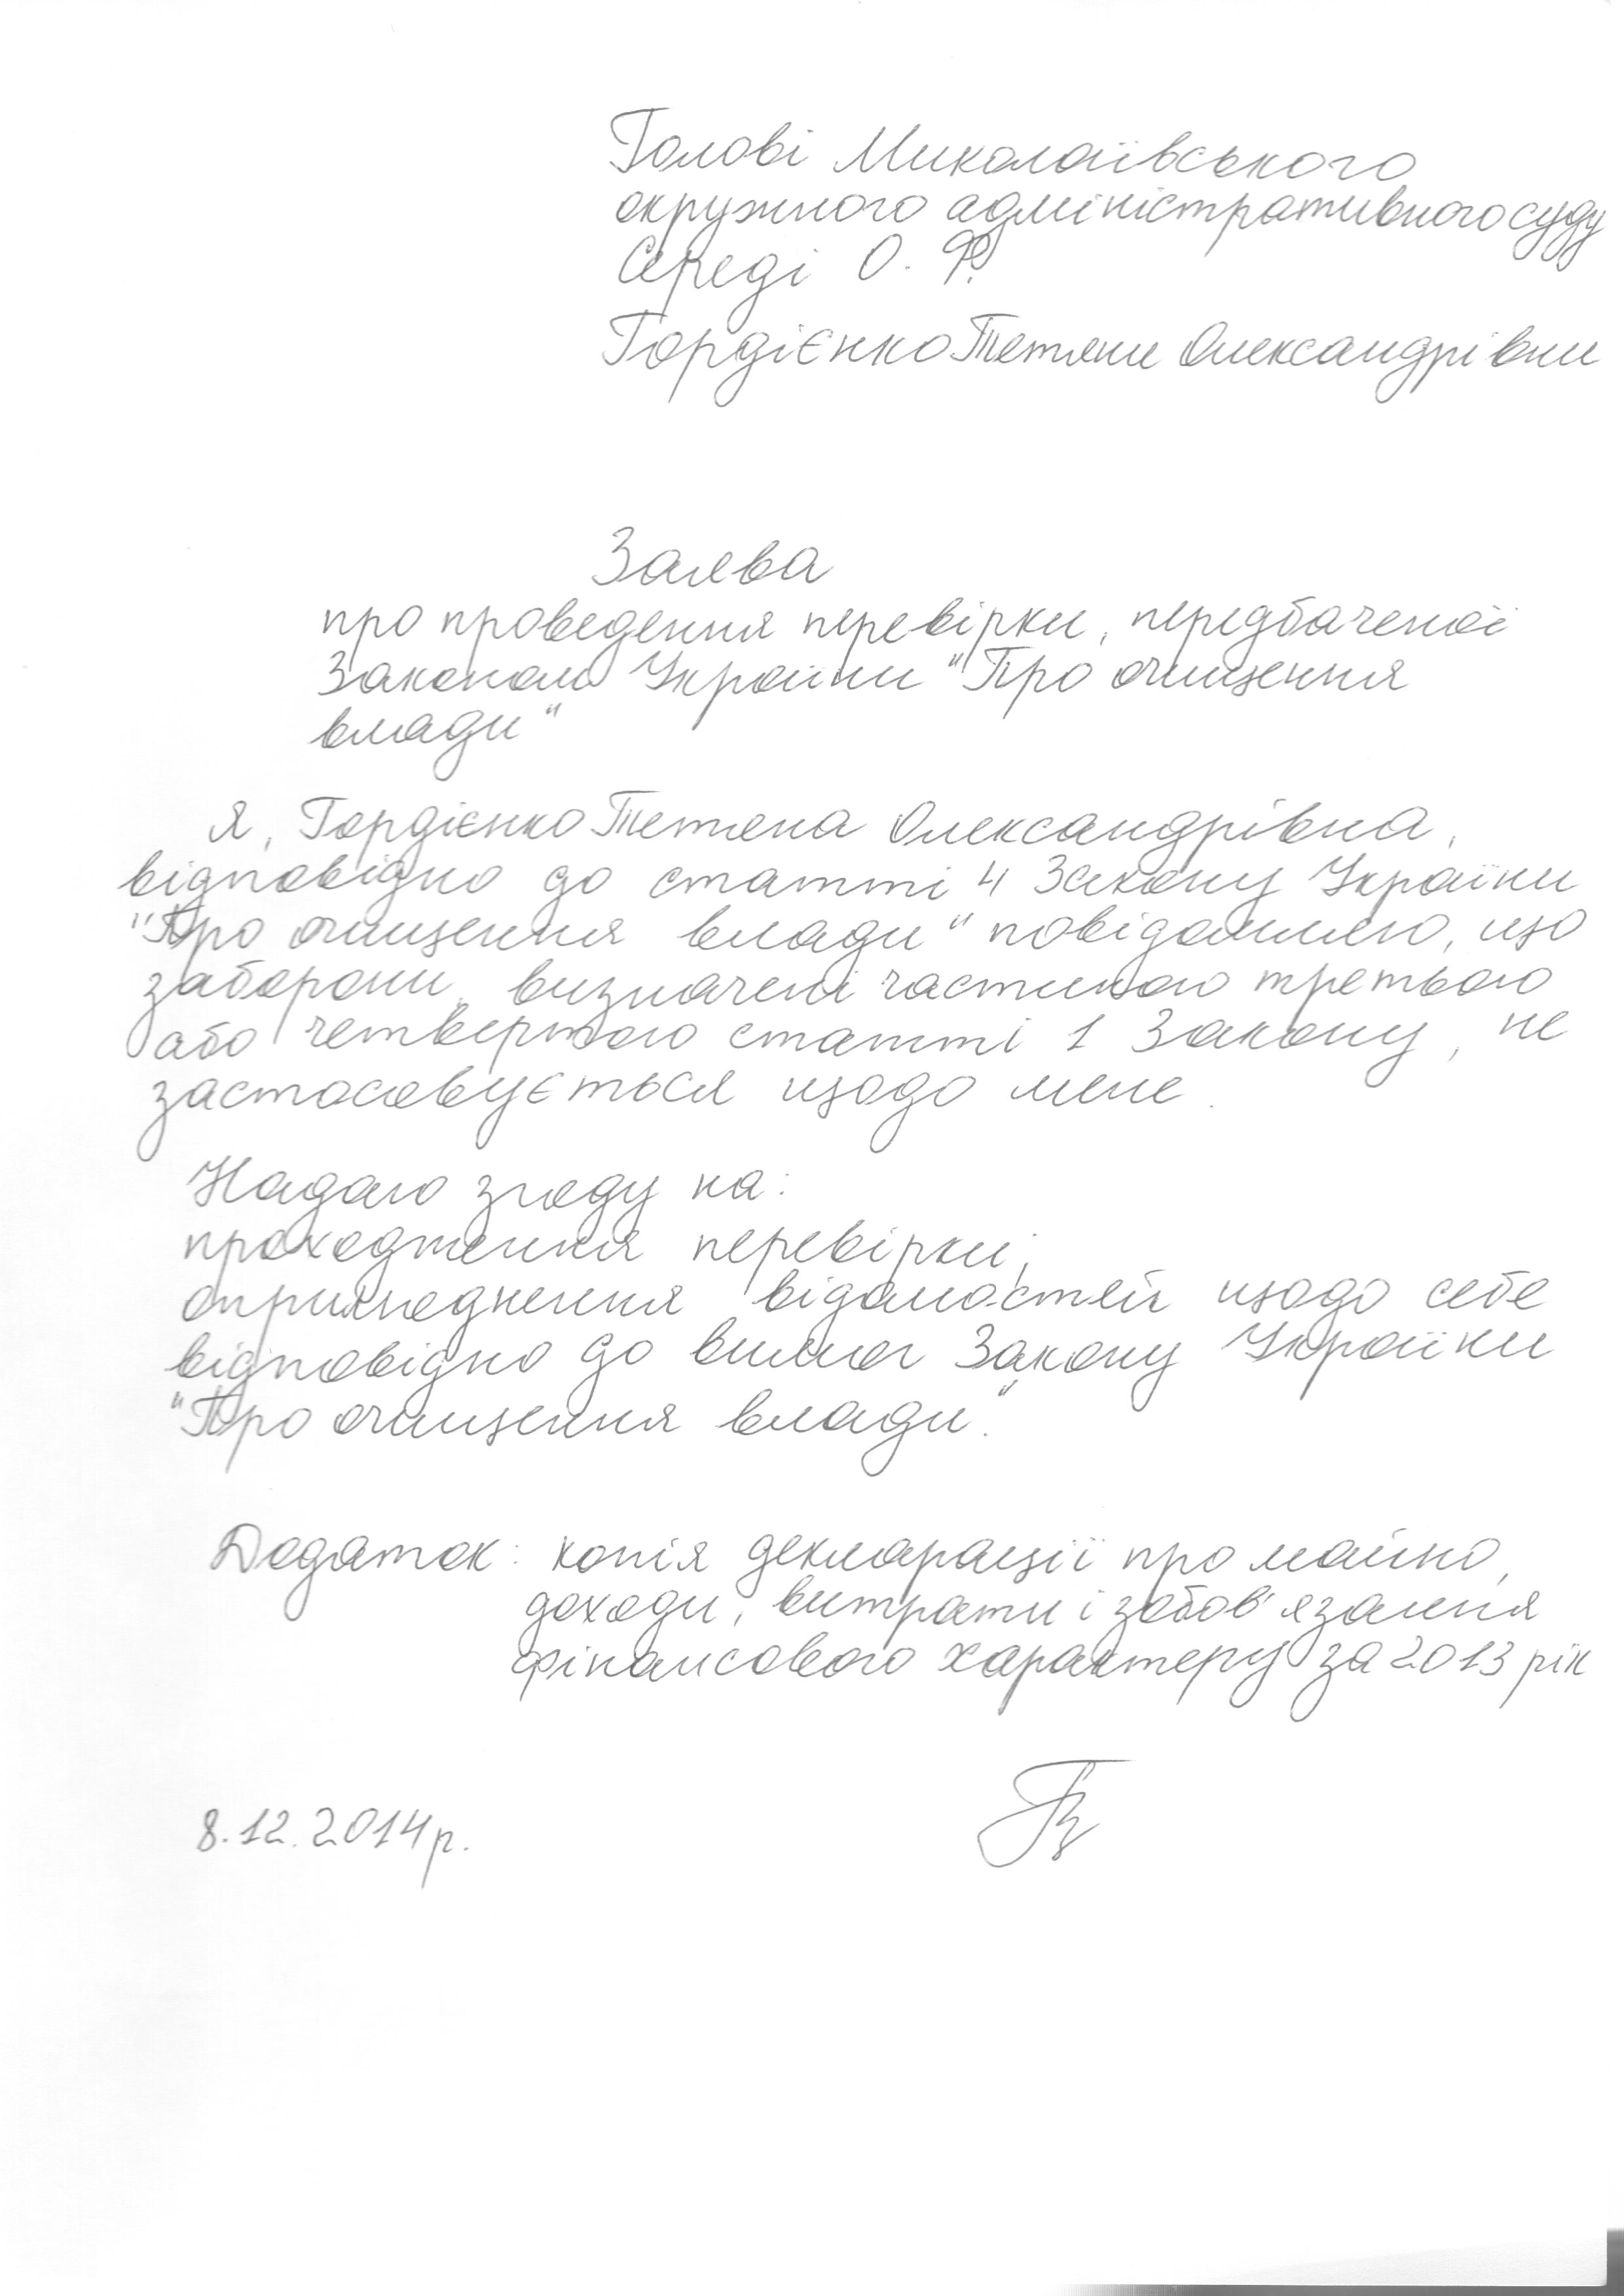 Голові Миколаївського
окружного адміністративного суду
Середі О. Ф.
Гордієнко Тетяни Олександрівни
Заява
про проведення перевірки, передбаченої
Законом України "Про очищення
влади"
Я, Гордієнко Тетяна Олександрівна,
відповідно до статті 4 Закону України
"Про очищення влади" повідомляю, що
заборони, визначені частиною третьою
або четвертою статті 1 Закону, не
застосовується щодо мене.
Надаю згоду на:
проходження перевірки;
оприлюднення відомостей щодо себе
відповідно до вимог Закону України
"Про очищення влади".
Додаток: копія декларації про майно,
доходи, витрати і зобов'язання
фінансового характеру за 2013 рік
8.12.2014р.